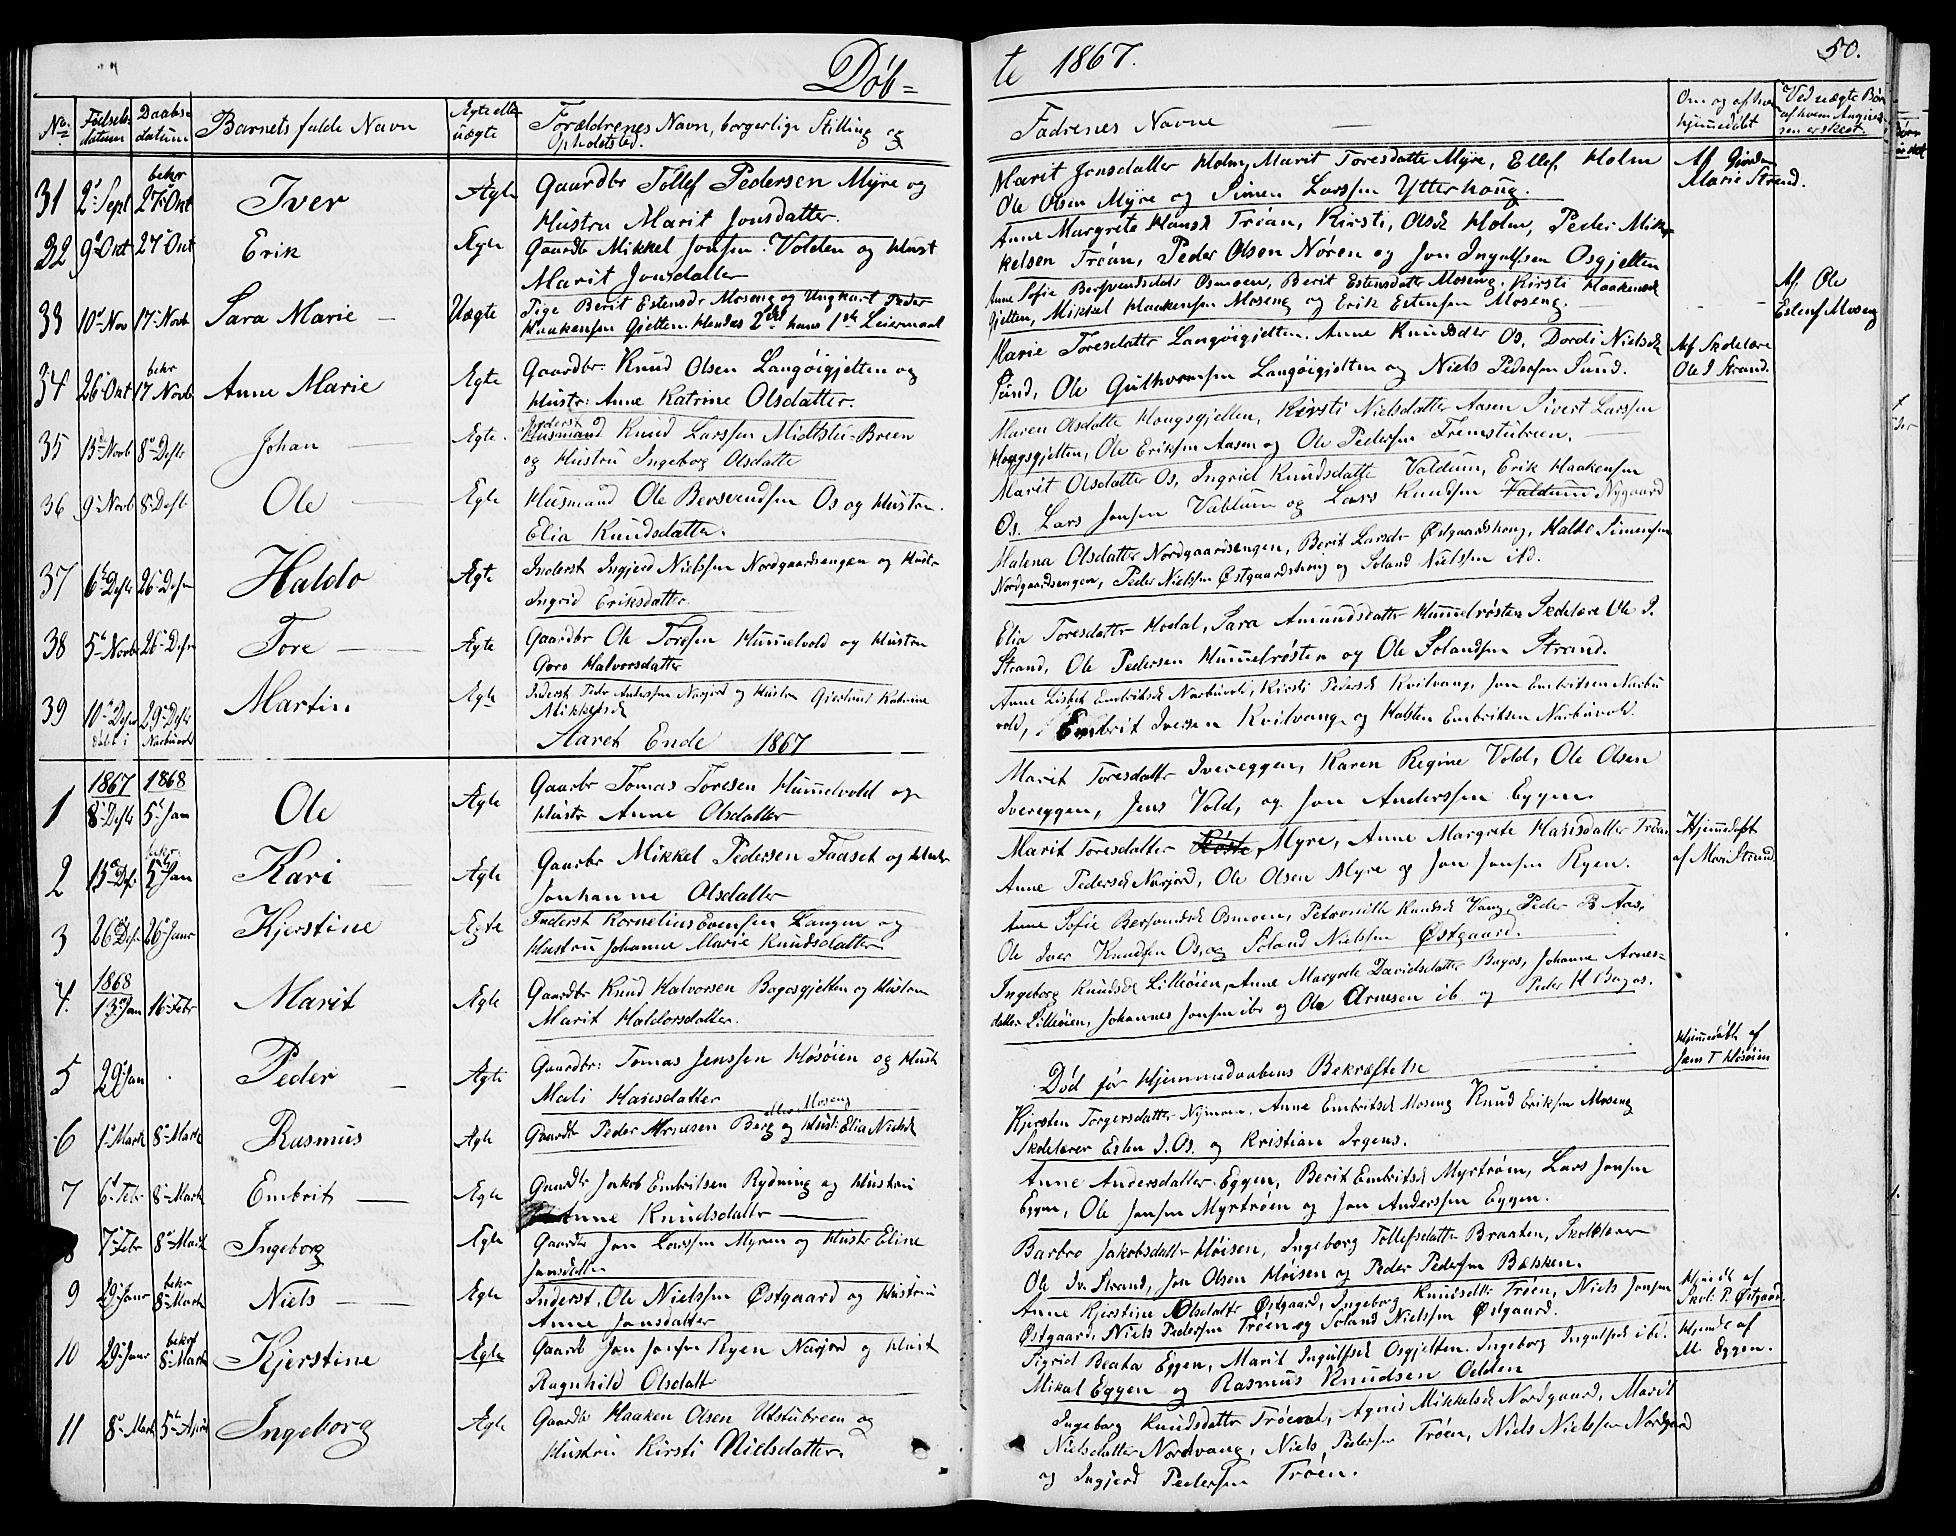 Døb=
te 1867.
50.
No. Fødsels datum Daabs datum Barnets fulde Navn Egte eller uægte Forældrenes Navn, borgerlige Stilling og Opholdsted.
Fadrenes Navne Om og af hvem hjemmedøbt Ved uægte Børn af hvem Angivelsen er skeet.
31 2 Sept bekr 27 Okt Iver Ægte Gaardbr Tollef Pedersen Myre og
Hustru Marit Jonsdatter.
Marit Jonsdatter Holm, Marit Toresdatter Myre, Ellef Holm
Ole Olsen Myre og Simen Larssen Ytterhoug.
Marie Strand.
32 9 Okt 27 Okt Erik Ægte Gaardb Mikkel Jonsen Volden og Hust
Marit Jonsdatter
Anne Margrete Hansd Trøan, Kirsti Olsd Holm, Peder Mik-
kelsen Trøan, Peder Olsen Nøren og Jon Ingulfsen Osgjelten
33 10 Nov 17 Novb Sara Marie Uægte Pige Berit Estensdr Moseng og Ungkarl Peder
Haakensen Gjelten. Hendes 2det hans 1ste Leiermaal
Anne Sofie Bersvendsdatr Osmoen, Berit Estensdatter Moseng, Kirsti Haakensd
Gjelten, Mikkel Haakensen Moseng og Erik Estensen Moseng.
Af Ole
Estens Moseng
34 26 Okt bekr 17 Novb Anne Marie Egte Gaardbr. Knud Olsen Langøigjelten og
Hustr: Anne Katrine Olsdatter.
Marie Toresdatter Langøigjelten, Anne Knudsdtr Os, Dordi Nielsd
Sund, Ole Guthormsen Langøigjelten og Niels Pedersen Sund.
Af Skolelære
Ole I Strand.
35 13 Novb 8 Desbr Johan Egte. Inderst Husmand Knud Larssen Midtstu-Breen
og Hustru Ingeborg Olsdatte
Maren Olsdatte Hougsgjelten, Kirsti Nielsdatter Aasen Sivert Larssen
Hougsgjelten, Ole Eriksen Aasen og Ole Pedersen Fremstubreen.
36 9 Novb 8 Desb Ole Egte Husmand Ole Bersvendsen Os og Hustru
Elia Knudsdatter.
Marit Olsdatter Os, Ingrid Knudsdatte Valdum, Erik Haakensen
Os. Lars Jonsen Valdum og Lars Knudsen Valdum Nygaard
37 6 Desbr 26 Desbr Haldo Ægte Inderst Ingjerd Nielssen Nordgaardsengen og Hustr
Ingrid Eriksdatter.
Malena Olsdatter Nordgaardsengen, Berit Larsdr Østgaardshoug, Haldo Simensen
Nordgaardsengen, Peder Nielssen Østgaardshoug og Soland Nielssen ibd.
38 5 Novb 26 Desbr Tore Ægte Gaardbr Ole Toresen Hummelvold og Hustru
Goro Halvorsdatter
Elia Toresdatter Hodal, Sara Amundsdatter Hummelrøsten Skolelære Ole I.
Strand, Ole Pedersen Hummelrøsten og Ole Solandsen Strand.
39 10 Desbr 29 Desbr Martin Egte Inderst Peder Anderssen Narjord og Hustru Gjertrud Katrine
Mikkelsd
døbt i Narbuvold
Anne Lisbet Embriksd Narbuvold, Kirsti Pedersd Kvilvang, Jon Embriksen Narbu
vold, Embrit Iversen Kvilvang og Halsten Embriksen Narbuvold.
Aaret Ende 1867
1867 1868
1 8 Desbr 5 Jan Ole Ægte Gaarbr Tomas Toresen Hummelvold og
Hustr Anne Olsdatter
Marit Toresdattr Ivereggen, Karen Regine Vold, Ole Olsen
Ivereggen, Jens Vold, og Jon Anderssen Eggen
2 15 Des bekr 5 Jan Kari Ægte Gaarbr Mikkel Pedersen Faaset og Hustr
Johanne Olsdatter
Marit Toresdatter Myre, Anne Margrete Hansdatter Trøan
Anne Pedersd Narjord, Ole Olsen Myre og Jon Jonsen Ryen.
Hjemmedøbt
af Mari Strand.
3 26 Desb 26 Janr Kjerstine Egte Inderst Kornelius Evensen Langen og
Hustru Johanne Marie Knudsdatter
Anne Sofie Bersvendsd Osmoen, Petronille Knudsd Vang, Peder B Aas,
Ole Iver Knudsen Os, og Soland Nielssen Østgaard.
1868
4. 13 Jan 16 Febr Marit Ægte Gaardbr Knud Halvorsen Bagosgjelten og Hustru
Marit Haldorsdatter.
Ingeborg Knudsd Lilleøien, Anne Margrete Davidsdatter Bagos, Johanne Arnes-
datter Lilleøien, Johannes Jonsen ibr og Ole Arnesen ib og Peder H Bagos.
5 29 Jan Peder Ægte Gaardbr: Tomas Jenssen Høsøien og Hust
Mali Hansdatter
Død før Hjemmedaabens Bekræftelse
Hjemmedøbt af
Jens T Høsøien
6 1 Mark 8 Mark Rasmus Ægte Gaardb Peder Arnesen Berg eller Moseng og Hust: Elia Nielsd
Kjersten Torgersdatter Nymoen, Anne Embritsd Moseng Knud Eriksen Moseng
Skolelærer Esten I. Os. og Kristian Irgens.
7 6 Febr 8 Mark Embrit Egte Gaardb Jakob Embritsen Rydning og Hustru
Anne Knudsdatter
Anne Andersdatter Eggen, Berit Embritsd Myrtrøen, Lars Jonsen
Eggen, Ole Jonsen Myrtrøen og Jon Anderssen Eggen.
8 7 Febr 8 Mark Ingeborg Egte Gaardb Jon Larssen Myren og Hustr Eline
Jonsdatter
Barbro Jakobsdatter Høisen, Ingeborg Tollefsdatter Braaten, Skolelærer
Ole Iv. Strand, Jon Olsen Høisen og Peder Pedersen Bakken.
9 29 Janr bekr 8 Mark Niels Egte Inderst. Ole Nielssen Østgaard og Hustru
Anne Jonsdatter
Anne Kjerstine Olsdattr Østgaard, Ingeborg Knudsdttr Trøen, Niels Jonsen
Østgaard, Niels Pedersen Trøen og Soland Nielssen Østgaard.
Hjemdt af
Skol. P. Østgaard.
10 29 Janr bekr 8 Mark Kjerstine Egte Gaardb Jon Jonsen Ryen Narjord og Hust
Ragnhild Olsdatt
Sigrid Beata Eggen, Marit Ingulfsd Osgjelten. Ingeborg Ingulfsd ibi.
Mikal Eggen og Rasmus Knudsen Odden
Hjemdt af
M. Eggen.
11 8 Mark 5 April Ingeborg Ægte Gaardbr Haaken Olsen Utstubreen og
Hustru Kirsti Nielsdatter.
Ingeborg Knudsdatter Trøen, Agnis Mikkelsd Nordgaard, Marit
Nielsdatter Nordvang, Niels Pedersen Trøen, Niels Nielssen Nordgaard
og Ingjerd Pedersen Trøen.